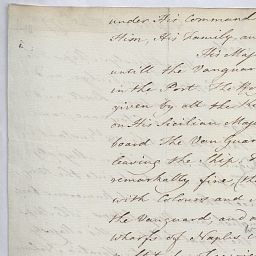 under His Command
tion, His Family an
His Maj
untill the Vanguar
in the Port. The Ro
given by all the
on His Sicilian Maj
board the Van Guar
leaving the Ship. 
remarkably fine, (th
with Colours and
the Vanguard, and
wharfs of Naples